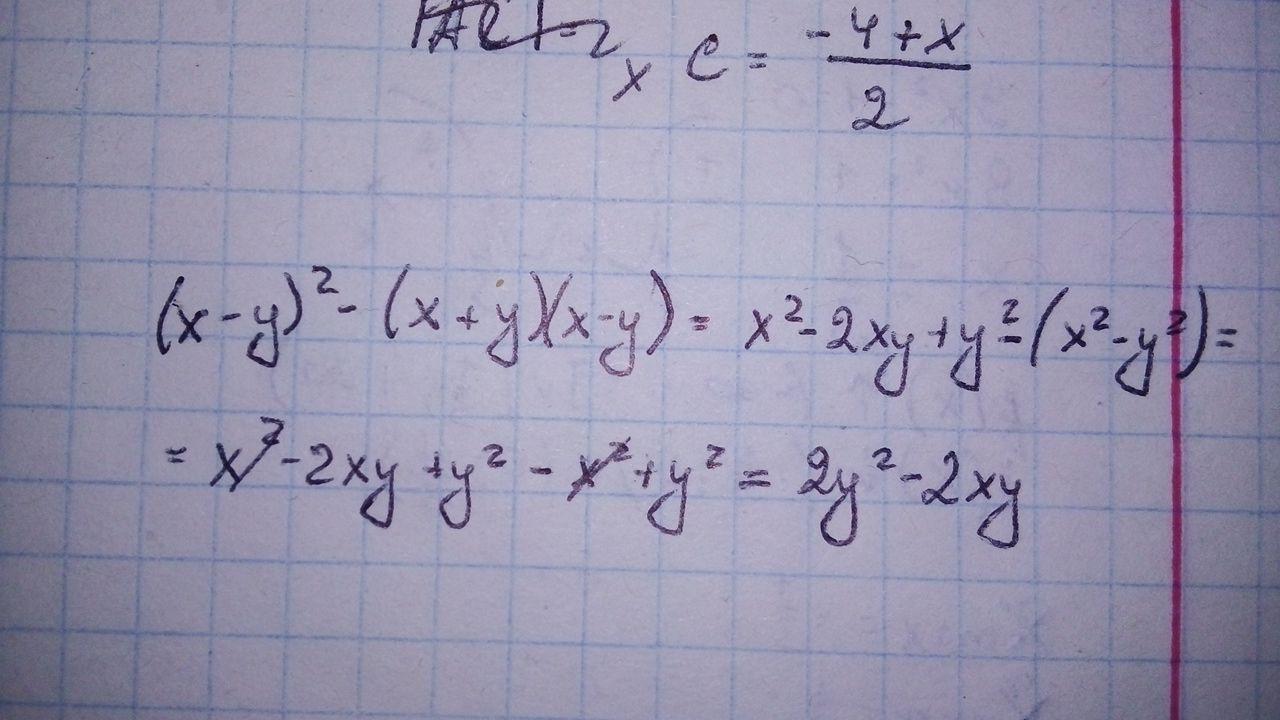 x C = -4+x / 2
(x-y)² - (x+y)(x-y) = x² - 2xy + y² - (x² - y²) =
= x² - 2xy + y² - x² + y² = 2y² - 2xy